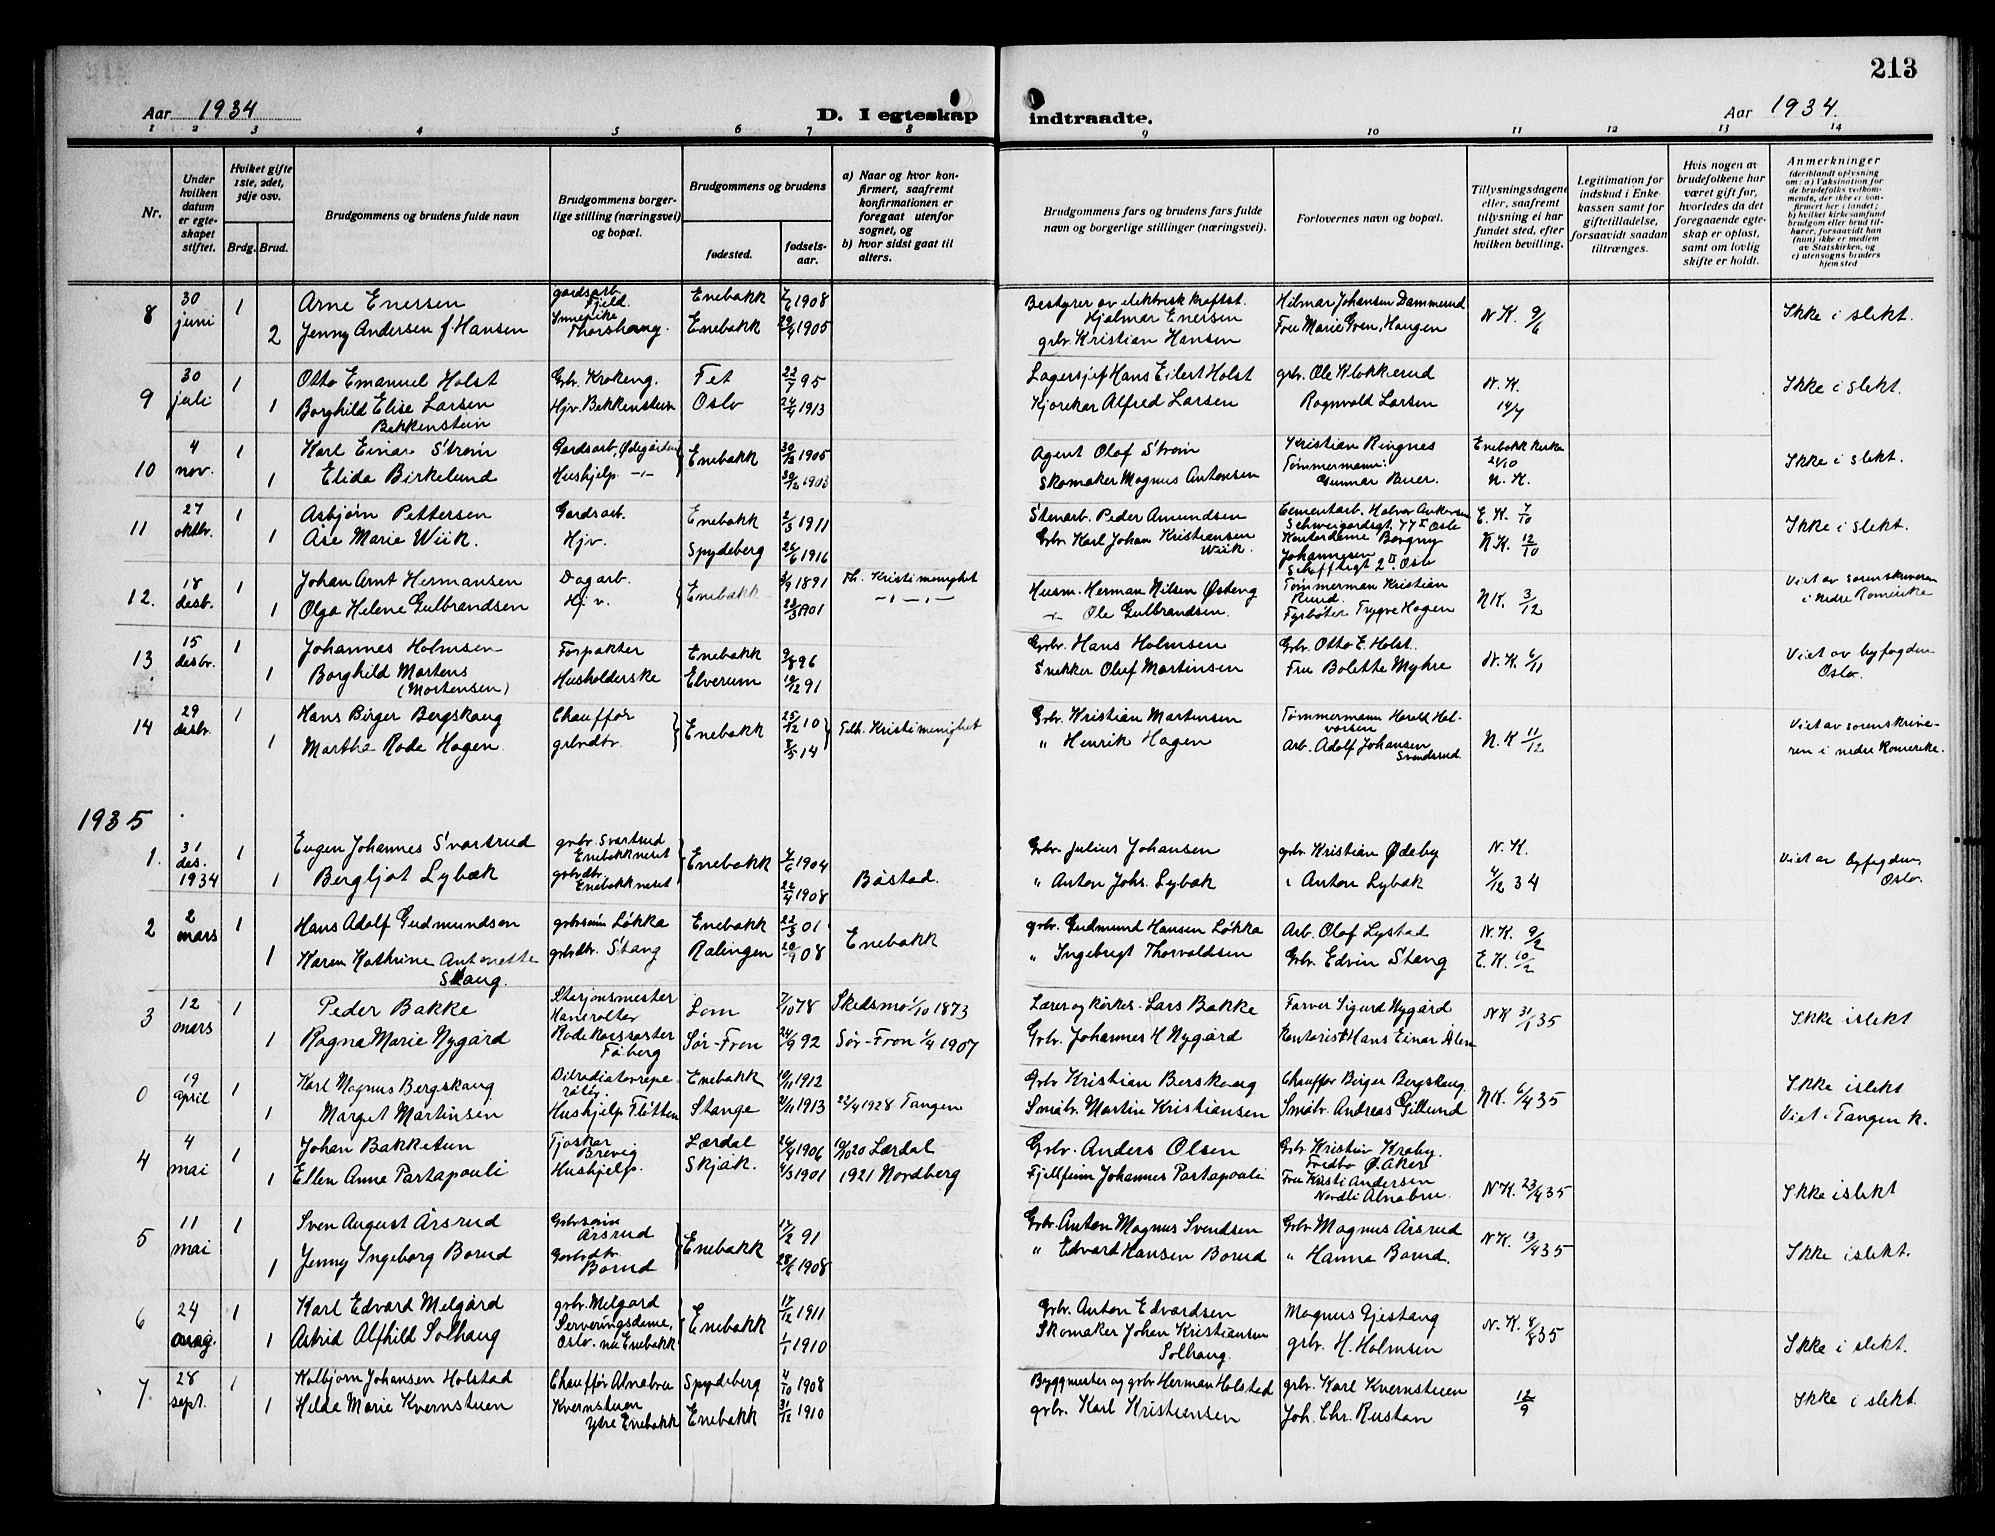 213
Aar 1934 D. I egteskap indtraadte. Aar 1934.
1 2 3 4 5 6 7 8 9 10 11 12 13 14
Nr.
Under hvilken datum er egteskapet stiftet.
Hviket gifte 1ste, 2det, 3dje osv.
Brdg. Brud.
Brudgommens og brudens fulde navn
Brudgommens borgerlige stilling (næringsvei) og bopæl.
Brudgommens og brudens
fødested. fødselsaar.
a) Naar og hvor konfirmert, saafremt konfirmationen er foregaat utenfor sognet, og
b) hvor sidst gaat til alters.
Brudgommens fars og brudens fars fulde navn og borgerlige stillinger (næringsvei).
Forlovernes navn og bopæl.
Tillysningsdagene eller, saafremt tillysning ei har fundet sted, efter hvilken bevilling.
Legitimation for indskud i Enkekassen samt for giftetilladelse, forsaavidt saadan tiltrænges.
Hvis nogen av brudefolkene har været gift før, hvorledes da det foregaaende egteskap er opløst, samt om lovlig skifte er holdt.
Anmerkninger (deriblandt oplysning om: a) Vaksination for de brudefolks vedkommende, der ikke er konfirmert her i landet; b) hvilket kirkesamfund brudgom eller brud tilhører, forsaavidt han (hun) ikke er medlem av Statskirken, og c) utensogns bruders hjemsted
8 30 juni 1 Arne Enersen gardsarb. Fjeld. Enebakk 1908 Bestyrer av elektrisk kraftst. Hjalmar Enersen Hilmar Johansen Dammerud N.K. 9/6 Ikke i slekt.
2 Jenny Andersen f. Hansen Thorshaug. Enebakk 29/4 1905 grbr. Kristian Hansen Fru Marie Gren, Haugen
9 30 juli 1 Otto Emanuel Holst Grbr. Krokeng. Fet 22/7 95 Lagersjef Hans Eilert Holst grbr. Ole Klokkerud N.K. 14/7 Ikke i slekt.
1 Borghild Elise Larsen Bekkenstein Hjv. Bekkenstein Oslo 24/4 1913 Kjørekar Alfred Larsen Ragnvald Larsen
10 4 nov. 1 Karl Einar Strøm Gardsarb. Ødegården Enebakk 30/12 1905 Agent Olaf Strøm Kristian Ringnes Enebakk kirke 21/10 N.K. Ikke i slekt.
1 Elida Birkelund Hushjelp -"- 30/12 1903 Skomaker Magnus Antonsen Tømmermann: Gunnar Buer.
11 27 oktbr. 1 Asbjørn Pettersen Gardsarb. Enebakk 2/3 1911 Stenarb. Peder Amundsen Cementarb. Halvor Ankersen Schweigaardsgt. 77 I Oslo E.K. 7/10 Ikke i slekt.
1 Åse Marie Wiik. Hjv. Spydeberg 26/6 1916 Grbr. Karl Johan Kristiansen Wiik. Kontordame Borgny Johannesen Schefftlgt 2 II Oslo N.K. 12/10
12. 18 desb. 1 Johan Arnt Hermansen Dagarb. Enebakk 1891 Fh. Kristi menighet Husm. Herman Nilsen Østeng Tømmerman Kristian Rund N.K. 3/12 Viet av sorenskriveren i nedre Romerike
1 Olga Helene Gulbrandsen Hj.v. 23/3 1901 -"-"- -"- Ole Gulbrandsen. Fyrbøter Trygve Hagen
13 15 desbr. 1 Johannes Holmsen Forpakter Enebakk 9/8 96 Grbr. Hans Holmsen Grbr. Otto E. Holst. N.K. 6/11 Viet av byfogden Oslo.
1 Borghild Martens (Mortensen) Husholderske Elverum 19/12 91 Snekker Oluf Martinsen Fru Bolette Myhre
14 29 desbr. 1 Hans Birger Bergskaug Chauffør Enebakk 25/12 10 Filh. Kristi menighet Grbr. Kristian Martinsen Tømmermann Harald Halvorsen N.K 11/12 Viet av sorenskriveren i nedre Romerike.
1 Martha Rode Hagen. grbrdtr. 8/5 14 " Henrik Hagen Arb. Adolf Johansen Svendsrud.
1935
1. 31 des. 1934 1 Eugen Johannes Svartrud grbr. Svartrud Enebakkneset Enebakk 4/6 1904 Grbr. Julius Johansen grbr. Kristian Ødeby N.K. 4/12 34 Viet av byfogden Oslo.
1 Bergljot Lybæk grbrdtr. Enebakkneset 22/4 1908 Båstad. " Anton Johs. Lybæk " Anton Lybæk
2 2 mars 1 Hans Adolf Gudmundsen grbrsønn Løkka Enebakk 22/3 01 Enebakk grbr. Gudmund Hansen Løkka Arb. Olaf Lystad N.K. 9/2
1 Karen Kathrine Antonette Skaug. grbrdtr. Stang Rælingen 20/9 08 " Ingebrigt Thorvaldsen Grbr. Edvin Stang E.K. 10/2
3 12 mars 1 Peder Bakke Stasjonsmester Lom 7/10 78 Skedsmo 1/10 1873 Lærer og kirkes. Lars Bakke Farver Sigurd Nygård N.K 31/1 35 Ikke i slekt
1 Ragna Marie Nygård Fåberg Sør-Fron 24/9 92 Sør-Fron 1/4 1907 Grbr. Johannes H Nygård Kontorist Hans Einar Ålen
0 19 april 1 Karl Magnus Bergskaug Bilradiatorreparatør. Enebakk 19/11 1912 Grbr Kristian Berskaug Chauffør Birger Bergskaug. N.K. 6/4 35 Ikke i slekt
1 Marget Martinsen Hushjelp Flåtten Stange 2/11 1913 22/4 1928 Tangen Småbr. Martin Kristiansen Småbr. Andreas Gillund Viet i Tangen k.
4 4 mai 1 Johan Bakketun Brevig Lærdal 24/4 1906 10/10 20 Lærdal Grbr. Anders Olsen Grbr Kristian Kraby. Fredbo Ø. Aker
1 Ellen Anne Partapouli Hushjelp. Skjåk. 4/3 1901 1921 Nordberg Fjellfinn Johannes Partapouli Fru Kristi Andersen Nordli Alnabru. N.K. 23/4 35 Ikke i slekt
5 11 mai 1 Sven August Årsrud Grbrsønn Årsrud Enebakk 17/2 91 Grbr. Anton Magnus Svendsen Grbr. Magnus Årsrud N.K. 13/4 35
1 Jenny Ingeborg Borud Grbrdtr. Borud 28/6 1908 " Edvard Hansen Borud " Hanna Borud. Ikke i slekt.
6 24 aug. 1 Karl Edvard Melgård grbr. Melgård Enebakk 17/12 1911 Grbr. Anton Edvardsen Magnus Gjestang N.K. 8/8 35
1 Astrid Alfhild Solhaug Serveringsdame, Oslo. nu Enebakk 1/1 1910 Skomaker Johan Kristiansen Solhaug. grbr. H. Holmsen Ikke i slekt.
7. 28 sept. 1 Kolbjørn Johansen Holstad Chauffør Alnabru Spydeberg 4/10 1908 Byggmester og grbr Herman Holstad grbr. Karl Kvernstuen 12/9 Ikke i slekt.
1 Hilda Marie Kvernstuen Kvernstuen Ytre Enebakk Enebakk 31/12 1910 grbr. Karl Kristiansen Joh. Chr. Rustan